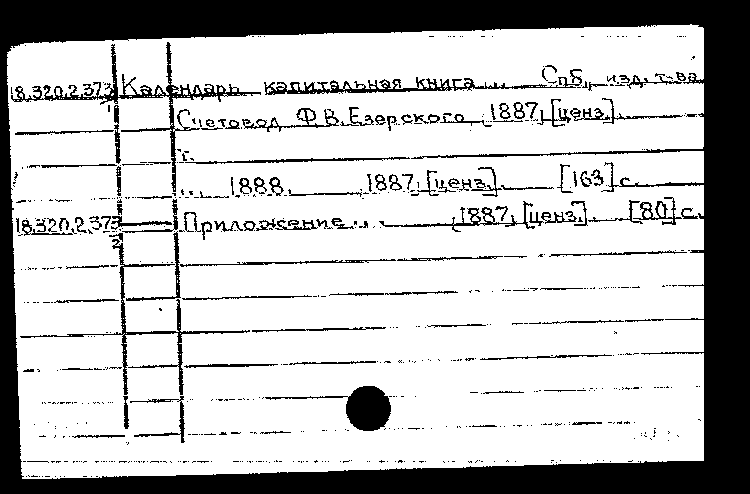 18.320.2.373 Календарь капитальная книга... Спб., изд. т-ва
1
Счетовод Ф.В.Езерского, 1887, [ценз].
т.
... 1888. 1887, [ценз.]. [163] с.
18.320.2.373 Приложение... 1887, [ценз.]. [80] с.
2